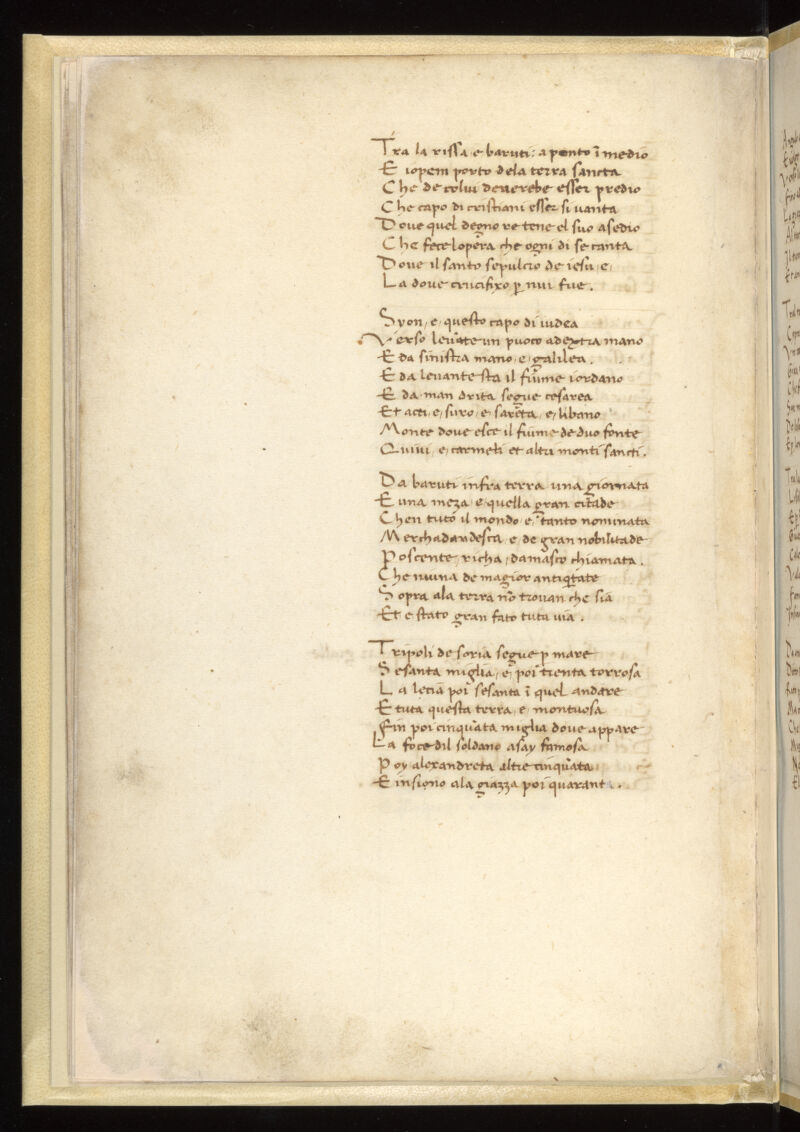 Tra la rissa e baruti: a ponto ĩ medio
E iopem porto dela terra sancta
Che de colui deuerebe esser predio
Che capo di cristiani esser si uanta
Doue quel degno re tene el suo asedio
Che fece lopera che ogni di se canta
Doue il santo sepulcro de iesu, e,
La doue crucifixo p̱ nui fue.
Syon, e, questo capo di iudea
Verso leuãte un puoco adextra mano
E da sinistra mano, e, galilea.
E da leuante sta il fiume iordano
E da man drita segue cesarea
Et acri, e, suro, e, sareta, e, libano
Monte doue esce il fiume de duo fonte
Quiui, e, carmeli et altri monti sancti.
Da baruti infra terra una giornata
E una meza, e quella gran citade
Chen tuto il mondo, e, tanto nominata
Merchadandesca, e, de gran nobilitade
Poscente, richa, damasco chiamata.
Che niuna de magior antiq̃tate
Sopra ala terra nõ trouan che sia
Et e stato gran fato tuta uia.
Tripoli de soria segue p̱ mare
Sesanta miglia, e, poi trenta torrosa
La lecia poi sesanta ĩ quel andare
E tuta questa terra, e, montuosa
Fin poi cinquãta miglia doue appare
La foce dil soldano asay famosa
Poy alexandreta altre cinquãta
E insiono ala giazza poi quarant..